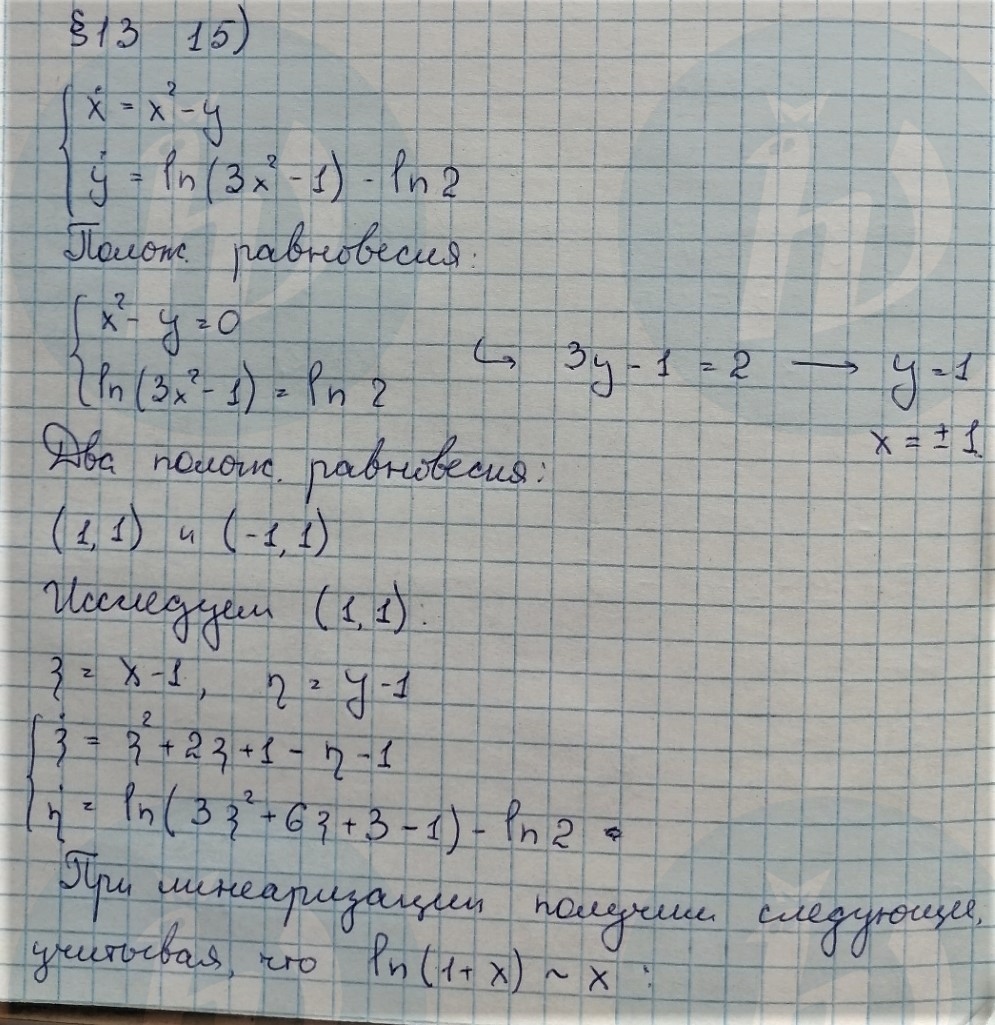 §13 15)
ẋ = x² - y
ẏ = ln(3x² - 1) - ln 2
Полож. равновесия:
x² - y = 0
ln(3x² - 1) = ln 2 ↪ 3y - 1 = 2 → y = 1
x = ± 1
Два полож. равновесия:
(1, 1) и (-1, 1)
Исследуем (1, 1):
ξ = x - 1, η = y - 1
ξ̇ = ξ² + 2ξ + 1 - η - 1
η̇ = ln(3ξ² + 6ξ + 3 - 1) - ln 2
При линеаризации получим следующее,
учитывая, что ln(1 + x) ~ x :